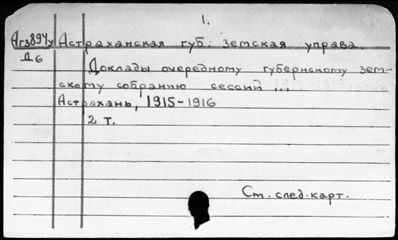 1.
Аг3894у Астраханская губ. земская управа.
Д6
Доклады очередному губернскому зем-
скому собранию сессий ...
Астрахань, 1915-1916
2 т.
См. след. карт.